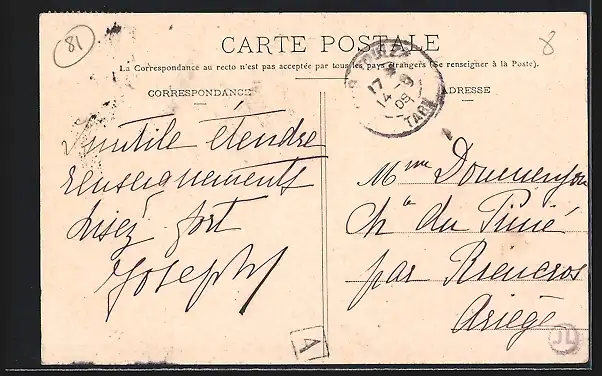 81
8
CARTE POSTALE
La Correspondance au recto n'est pas acceptée par tous les pays étrangers (Se renseigner à là Poste).
CORRESPONDANCE
ADRESSE
17
14 - 9
09
TARN
Inutile étendre
renseignements
disez fort
Joseph
Mme
Ch au du Pinié
par Rieucros
Ariège
A
JL